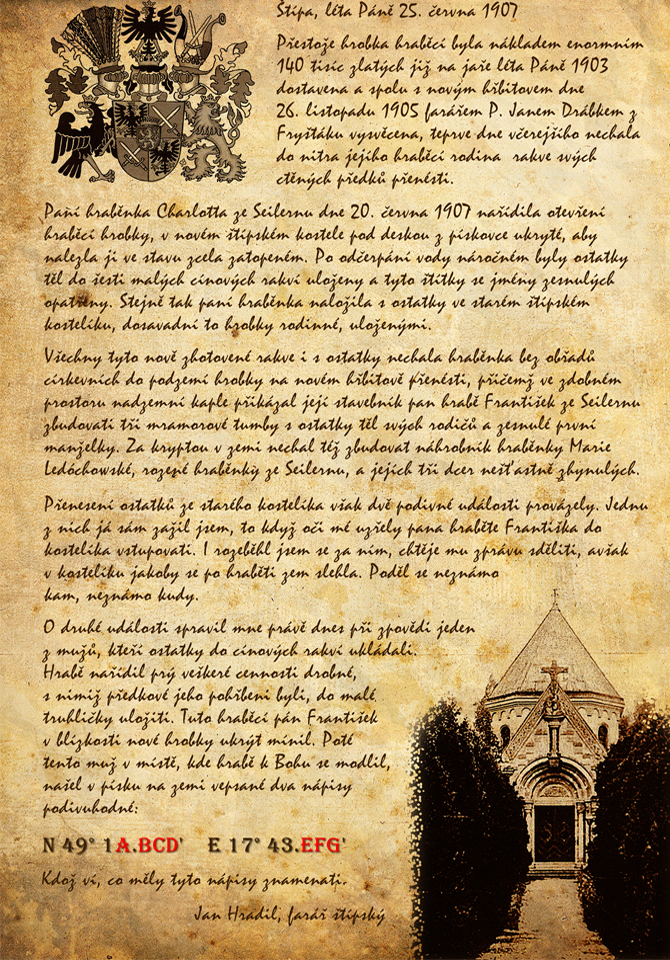 Štípa, léta Páně 25. června 1907
Přestože hrobka hraběcí byla nákladem enormním
140 tisíc zlatých již na jaře léta Páně 1903
dostavena a spolu s novým hřbitovem dne
26. listopadu 1905 farářem P. Janem Drábkem z
Fryštáku vysvěcena, teprve dne včerejšího nechala
do nitra jejího hraběcí rodina rakve svých
ctěných předků přenésti.
Paní hraběnka Charlotta ze Seilernu dne 20. června 1907 nařídila otevření
hraběcí hrobky, v novém štípském kostele pod deskou z pískovce ukryté, aby
nalezla ji ve stavu zcela zatopeném. Po odčerpání vody náročném byly ostatky
těl do šesti malých cínových rakví uloženy a tyto štítky se jmény zesnulých
opatřeny. Stejně tak paní hraběnka naložila s ostatky ve starém štípském
kostelíku, dosavadní to hrobky rodinné, uloženými.
Všechny tyto nově zhotovené rakve i s ostatky nechala hraběnka bez obřadů
církevních do podzemí hrobky na novém hřbitově přenésti, přičemž ve zdobném
prostoru nadzemní kaple přikázal její stavebník pan hrabě František ze Seilernu
zbudovati tři mramorové tumby s ostatky těl svých rodičů a zesnulé první
manželky. Za kryptou v zemi nechal též zbudovat náhrobník hraběnky Marie
Ledóchowské, rozené hraběnky ze Seilernu, a jejích tří dcer nešťastně zhynulých.
Přenesení ostatků ze starého kostelíka však dvě podivné události provázely. Jednu
z nich já sám zažil jsem, to když oči mé uzřely pana hraběte Františka do
kostelíka vstupovati. I rozeběhl jsem se za ním, chtěje mu zprávu sděliti, avšak
v kostelíku jakoby se po hraběti zem slehla. Poděl se neznámo
kam, neznámo kudy.
O druhé události spravil mne právě dnes při zpovědi jeden
z mužů, kteří ostatky do cínových rakví ukládali.
Hrabě nařídil prý veškeré cennosti drobné,
s nimiž předkové jeho pohřbeni byli, do malé
truhličky uložiti. Tuto hraběcí pán František
v blízkosti nové hrobky ukrýt mínil. Poté
tento muž v místě, kde hrabě k Bohu se modlil,
našel v písku na zemi vepsané dva nápisy
podivuhodné:
N 49° 1A.BCD' E 17° 43.EFG'
Kdož ví, co měly tyto nápisy znamenati.
Jan Hradil, farář štípský